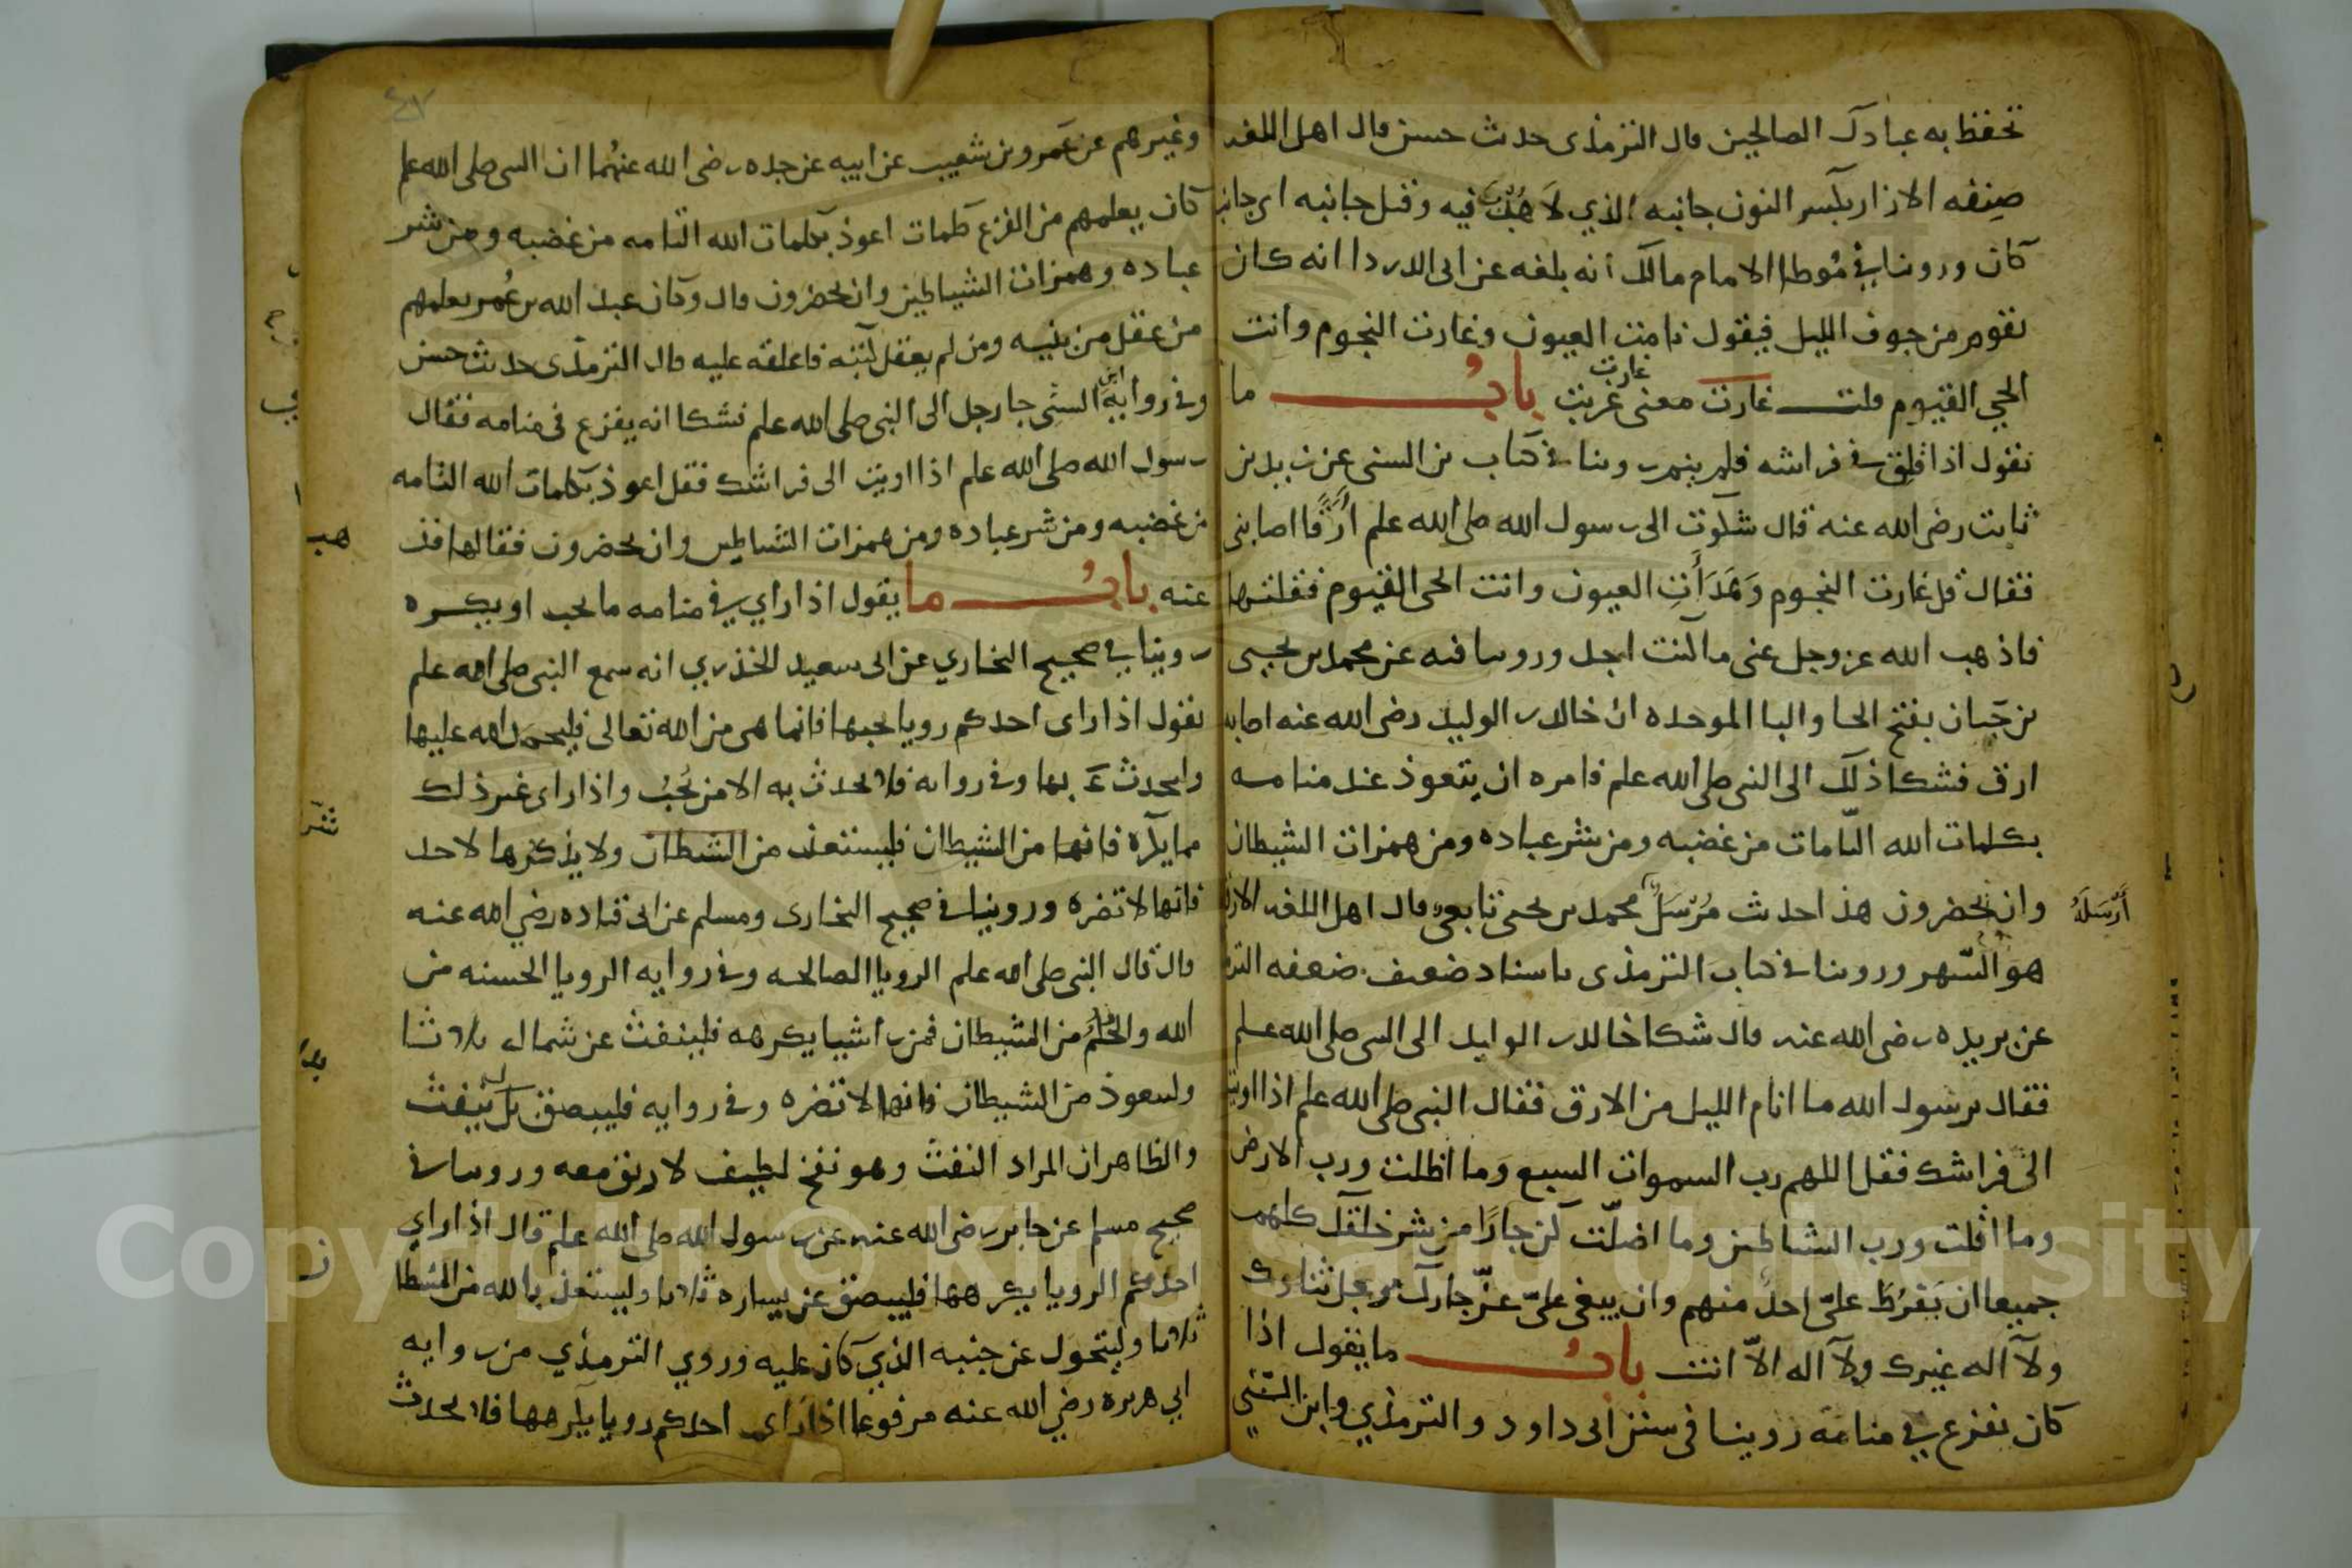 تحفظ به عبادك الصالحين قال الترمذى حديث حسن قال اهل اللغه
صنفه الازار بكسر النون جانبه الذي لا هدب فيه وقيل جانبه اى جانب
كان وروينا في موطا الامام مالك انه بلغه عن ابى الدردا انه كان
يقوم من جوف الليل فيقول نامت العيون وغارت النجوم وانت
الحي القيوم قلت غارت معنى غربت باب ما
غارت
يقول اذا قلق في فراشه فلم ينم روينا في كتاب بن السنى عن زيد بن
ثابت رضى الله عنه قال شكوت الى رسول الله صلى الله علم ارقا اصابنى
فقال قل غارت النجوم وَهَدَأَتِ العيون وانت الحى القيوم فقلتها
فاذهب الله عز وجل عنى ما كنت اجد وروينا فيه عن محمد بن يحيى
بن حَبان بفتح الحا والبا الموحده ان خالد بن الوليد رضى الله عنه اصابه
ارق فشكا ذلك الى النبى صلى الله علم فامره ان يتعوذ عند منامه
بكلمات الله التامات من غضبه ومن شر عباده ومن همزات الشيطان
وان يحضرون هذا حديث مُرْسَل محمد بن يحيى تابعي قال اهل اللغه الارق
أَرْسَلَهُ
هو السهر وروينا في كتاب الترمذى باسناد ضعيف ضعفه
عن بريده رضى الله عنه قال شكا خالد بن الوليد الى النبى صلى الله علم
فقال يرسول الله ما انام الليل من الارق فقال النبى صلى الله علم اذا اويت
الى فراشك فقل اللهم رب السموات السبع وما اظلت ورب الارض
وما اقلت ورب الشياطين وما اضلّت كن جارًا من شر خلقك كلهم
جميعا ان يَفرُطَ علىّ احد منهم وان يبغى علىّ عزّ جارك وجل ثناوك
ولا اله غيرك ولا اله الاّ انت باب ما يقول اذا
كان يفزع في منامه روينا فى سنن ابى داود والترمذي وابن السُّني
وغيرهم عن عَمرو بن شعيب عن ابيه عن جده رضى الله عنهُما ان النبى صلى الله علم
كان يعلمهم من الفزع كلمات اعوذ بكلمات الله التامه من غضبه ومن شر
عباده وهمزات الشياطين وان يحضرون قال وكان عبد الله بن عُمر يعلمهم
من عقل من بنيه ومن لم يعقل كتبه فاعلقه عليه قال الترمذى حديث حسن
وفى رواية ابن السنى جا رجل الى النبى صلى الله علم فشكا انه يفزع فى منامه فقال
رسول الله صلى الله علم اذا اويت الى فراشك فقل اعوذ بكلمات الله التامه
من غضبه ومن شر عباده ومن همزات الشياطين وان يحضرون فقالها فذ
هب
عنه باب ما يقول اذا راي في منامه ما يحب او يكره
روينا في صحيح البخاري عن ابى سعيد الخذري انه سمع النبى صلى الله علم
يقول اذا راى احدكم رويا يحبها فانما هى من الله تعالى فليحمد الله عليها
وليحدث بها وفى روايه فلا يحدث به الا من يُحِبُ واذا راى غير ذلك
مما يكره فانها من الشيطان فليستعذ من الشطان ولا يذكرها لاحد
فانها لا تضره وروينا في صحيح البخارى ومسلم عن ابى قتاده رضي الله عنه
قال قال النبى صلى الله علم الرويا الصالحه وفى روايه الرويا الحسنه من
الله والحُلُم من الشيطان فمن راى شيا يكرهه فلينفث عن شماله ثلاثا
وليتعوذ من الشيطان فانها لا تضره وفى روايه فليبصق بدل فلينفث
والظاهر ان المراد النفث وهو نفخ لطيف لا ريق معه وروينا في
صحيح مسلم عن جابر رضى الله عنه عن رسول الله صلى الله علم قال اذا راي
احدكم الرويا يكرهها فليبصق عن يساره ثلاثا وليستعذ بالله من الشيطا
ن
ثلاثا وليتحول عن جنبه الذي كان عليه وروي الترمذي من روايه
ابي هريره رضي الله عنه مرفوعا اذا راى احدكم رويا يكرهها فلا يحدث
Copyright © King Saud University